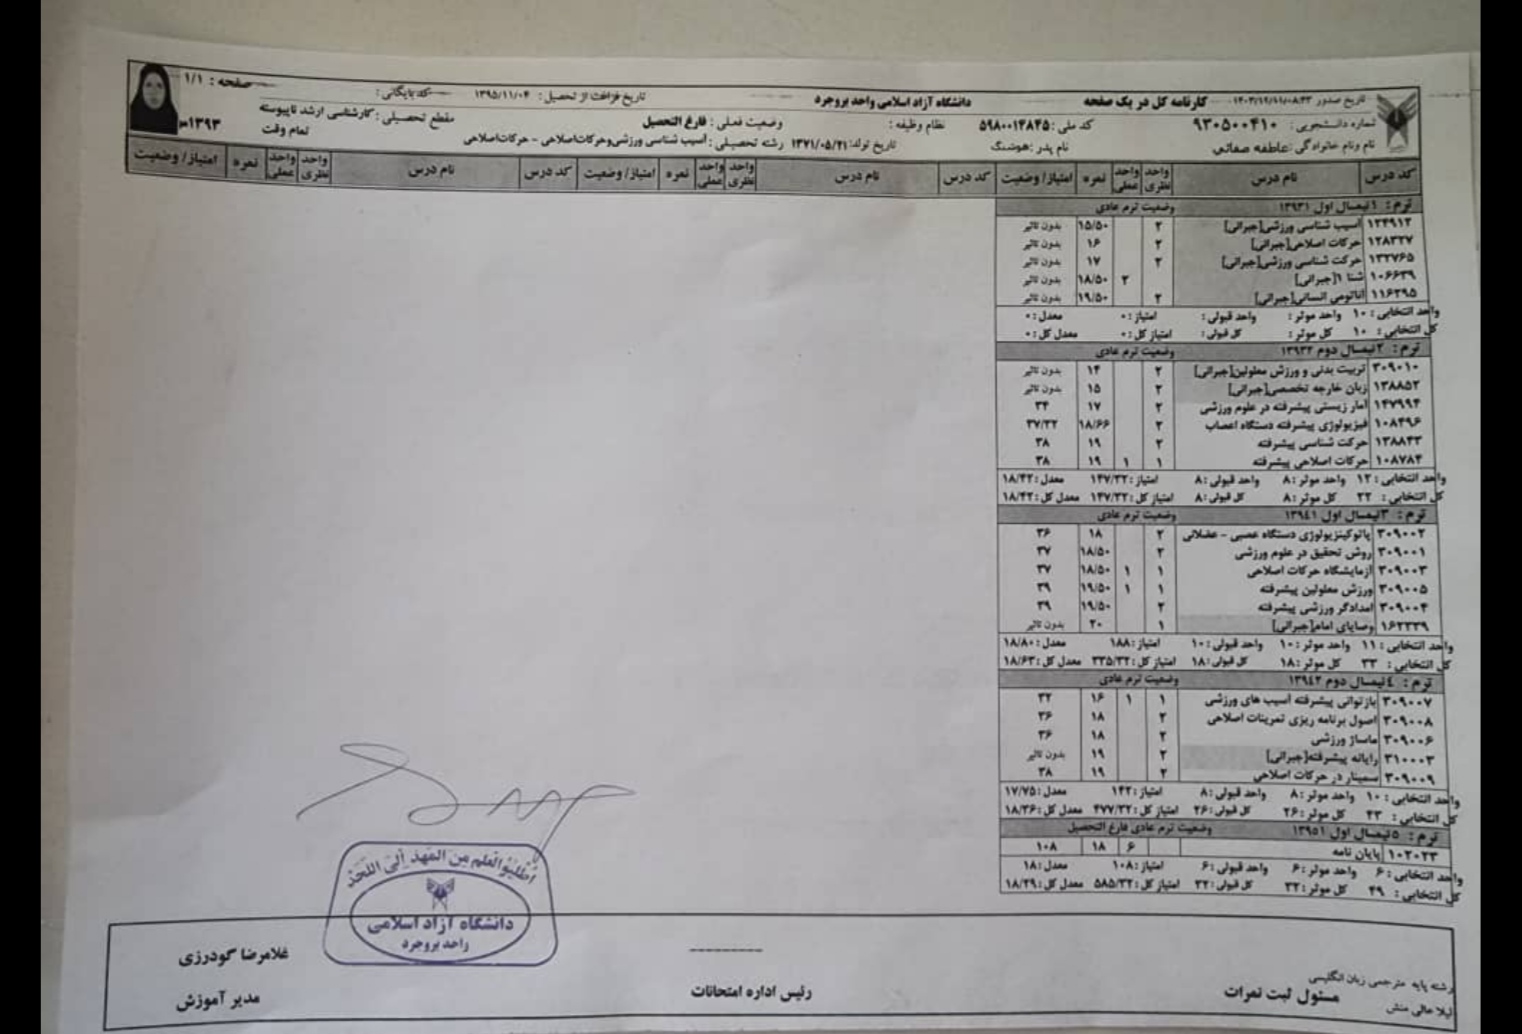 تاریخ صدور ۱۴۰۳/۱۲/۱۱-۰۸:۴۳ کارنامه کل در یک صفحه دانشگاه آزاد اسلامی واحد بروجرد تاریخ فراغت از تحصیل : ۱۳۹۵/۱۱/۰۴ کد بایگانی : صفحه : ۱/۱
شماره دانشجویی : ۹۳۰۵۰۰۴۱۰ کد ملی : ۵۹۸۰۰۱۳۸۴۵ نظام وظیفه : وضعیت فعلی : فارغ التحصیل مقطع تحصیلی : کارشناسی ارشد ناپیوسته ۱۳۹۳
نام ونام خانوادگی : عاطفه صفائی نام پدر : هوشنگ تاریخ تولد: ۱۳۷۱/۰۵/۲۱ رشته تحصیلی : آسیب شناسی ورزشی وحرکات اصلاحی - حرکات اصلاحی تمام وقت
کد درس نام درس واحد نظری واحد عملی نمره امتیاز/ وضعیت کد درس نام درس واحد نظری واحد عملی نمره امتیاز/ وضعیت کد درس نام درس واحد نظری واحد عملی نمره امتیاز/ وضعیت
ترم : ۱نیمسال اول ۱۳۹۳۱ وضعیت ترم عادی
۱۳۴۹۱۲ آسیب شناسی ورزشی[جبرانی] ۲ ۱۵/۵۰ بدون تاثیر
۱۲۸۳۲۷ حرکات اصلاحی[جبرانی] ۲ ۱۶ بدون تاثیر
۱۳۲۷۶۵ حرکت شناسی ورزشی[جبرانی] ۲ ۱۷ بدون تاثیر
۱۰۶۶۳۹ شنا ۱[جبرانی] ۲ ۱۸/۵۰ بدون تاثیر
۱۱۶۳۹۵ آناتومی انسانی[جبرانی] ۲ ۱۹/۵۰ بدون تاثیر
واحد انتخابی : ۱۰ واحد موثر : واحد قبولی : امتیاز : ۰ معدل : ۰
کل انتخابی : ۱۰ کل موثر : کل قبولی : امتیاز کل : ۰ معدل کل : ۰
ترم : ۲نیمسال دوم ۱۳۹۳۲ وضعیت ترم عادی
۳۰۹۰۱۰ تربیت بدنی و ورزش معلولین[جبرانی] ۲ ۱۴ بدون تاثیر
۱۳۸۸۵۲ زبان خارجه تخصصی[جبرانی] ۲ ۱۵ بدون تاثیر
۱۴۷۹۹۴ آمار زیستی پیشرفته در علوم ورزشی ۲ ۱۷ ۳۴
۱۰۸۴۹۶ فیزیولوژی پیشرفته دستگاه اعصاب ۲ ۱۸/۶۶ ۳۷/۳۲
۱۳۸۸۴۳ حرکت شناسی پیشرفته ۲ ۱۹ ۳۸
۱۰۸۷۸۴ حرکات اصلاحی پیشرفته ۱ ۱ ۱۹ ۳۸
واحد انتخابی : ۱۲ واحد موثر : ۸ واحد قبولی : ۸ امتیاز : ۱۴۷/۳۲ معدل : ۱۸/۴۲
کل انتخابی : ۲۲ کل موثر : ۸ کل قبولی : ۸ امتیاز کل : ۱۴۷/۳۲ معدل کل : ۱۸/۴۲
ترم : ۳نیمسال اول ۱۳۹٤۱ وضعیت ترم عادی
۳۰۹۰۰۲ پاتوکینزیولوژی دستگاه عصبی - عضلانی ۲ ۱۸ ۳۶
۳۰۹۰۰۱ روش تحقیق در علوم ورزشی ۲ ۱۸/۵۰ ۳۷
۳۰۹۰۰۳ آزمایشگاه حرکات اصلاحی ۱ ۱ ۱۸/۵۰ ۳۷
۳۰۹۰۰۵ ورزش معلولین پیشرفته ۱ ۱ ۱۹/۵۰ ۳۹
۳۰۹۰۰۴ امدادگر ورزشی پیشرفته ۲ ۱۹/۵۰ ۳۹
۱۶۲۳۳۹ وصایای امام[جبرانی] ۱ ۲۰ بدون تاثیر
واحد انتخابی : ۱۱ واحد موثر : ۱۰ واحد قبولی : ۱۰ امتیاز : ۱۸۸ معدل : ۱۸/۸۰
کل انتخابی : ۳۳ کل موثر : ۱۸ کل قبولی : ۱۸ امتیاز کل : ۳۳۵/۳۲ معدل کل : ۱۸/۶۳
ترم : ٤نیمسال دوم ۱۳۹٤۲ وضعیت ترم عادی
۳۰۹۰۰۷ بازتوانی پیشرفته آسیب های ورزشی ۱ ۱ ۱۶ ۳۲
۳۰۹۰۰۸ اصول برنامه ریزی تمرینات اصلاحی ۲ ۱۸ ۳۶
۳۰۹۰۰۶ ماساژ ورزشی ۲ ۱۸ ۳۶
۳۱۰۰۰۳ رایانه پیشرفته[جبرانی] ۲ ۱۹ بدون تاثیر
۳۰۹۰۰۹ سمینار در حرکات اصلاحی ۲ ۱۹ ۳۸
واحد انتخابی : ۱۰ واحد موثر : ۸ واحد قبولی : ۸ امتیاز : ۱۴۲ معدل : ۱۷/۷۵
کل انتخابی : ۴۳ کل موثر : ۲۶ کل قبولی : ۲۶ امتیاز کل : ۴۷۷/۳۲ معدل کل : ۱۸/۳۶
ترم : ۵نیمسال اول ۱۳۹۵۱ وضعیت ترم عادی فارغ التحصیل
۱۰۲۰۲۳ پایان نامه ۶ ۱۸ ۱۰۸
واحد انتخابی : ۶ واحد موثر : ۶ واحد قبولی : ۶ امتیاز : ۱۰۸ معدل : ۱۸
کل انتخابی : ۴۹ کل موثر : ۳۲ کل قبولی : ۳۲ امتیاز کل : ۵۸۵/۳۲ معدل کل : ۱۸/۲۹
اطلبوالعلم من المهد الی اللحد
دانشگاه آزاد اسلامی
واحد بروجرد
رشته پایه مترجمی زبان انگلیسی
مسئول ثبت نمرات رئیس اداره امتحانات غلامرضا گودرزی
لیلا عالی منش مدیر آموزش